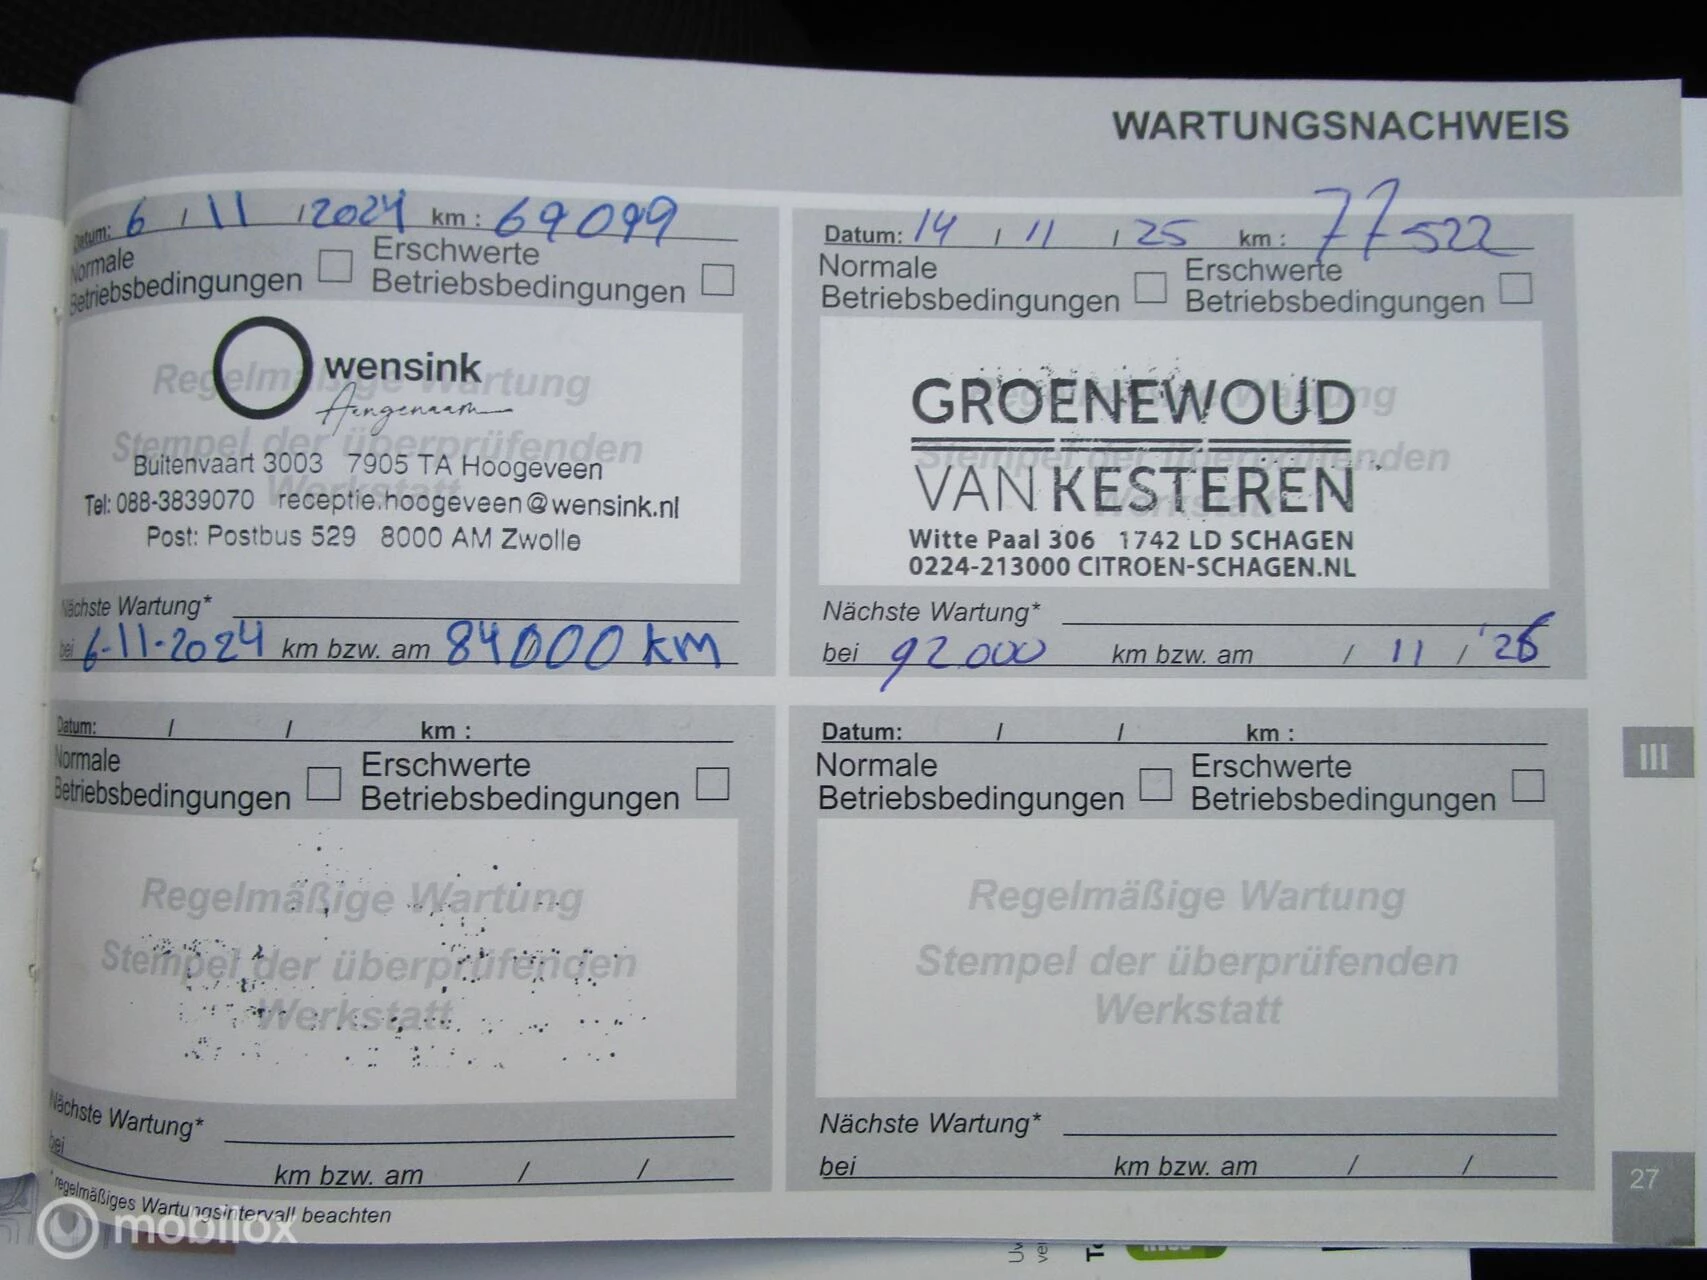 WARTUNGSNACHWEIS
Datum: 6 / 11 / 2024 km : 69099
Normale Betriebsbedingungen Erschwerte Betriebsbedingungen
Regelmäßige Wartung
Stempel der überprüfenden
Werkstatt
wensink
Aangenaam
Buitenvaart 3003 7905 TA Hoogeveen
Tel: 088-3839070 receptie.hoogeveen@wensink.nl
Post: Postbus 529 8000 AM Zwolle
Nächste Wartung*
bei 6-11-2024 km bzw. am 84000 km
Datum: 14 / 11 / 25 km : 77522
Normale Betriebsbedingungen Erschwerte Betriebsbedingungen
Regelmäßige Wartung
Stempel der überprüfenden
Werkstatt
GROENEWOUD
VAN KESTEREN
Witte Paal 306 1742 LD SCHAGEN
0224-213000 CITROEN-SCHAGEN.NL
Nächste Wartung*
bei 92000 km bzw. am / 11 / '26
Datum: / / km :
Normale Betriebsbedingungen Erschwerte Betriebsbedingungen
Regelmäßige Wartung
Stempel der überprüfenden
Werkstatt
Nächste Wartung*
bei km bzw. am / /
Datum: / / km :
Normale Betriebsbedingungen Erschwerte Betriebsbedingungen
Regelmäßige Wartung
Stempel der überprüfenden
Werkstatt
Nächste Wartung*
bei km bzw. am / /
*regelmäßiges Wartungsintervall beachten
III
27
mobilox